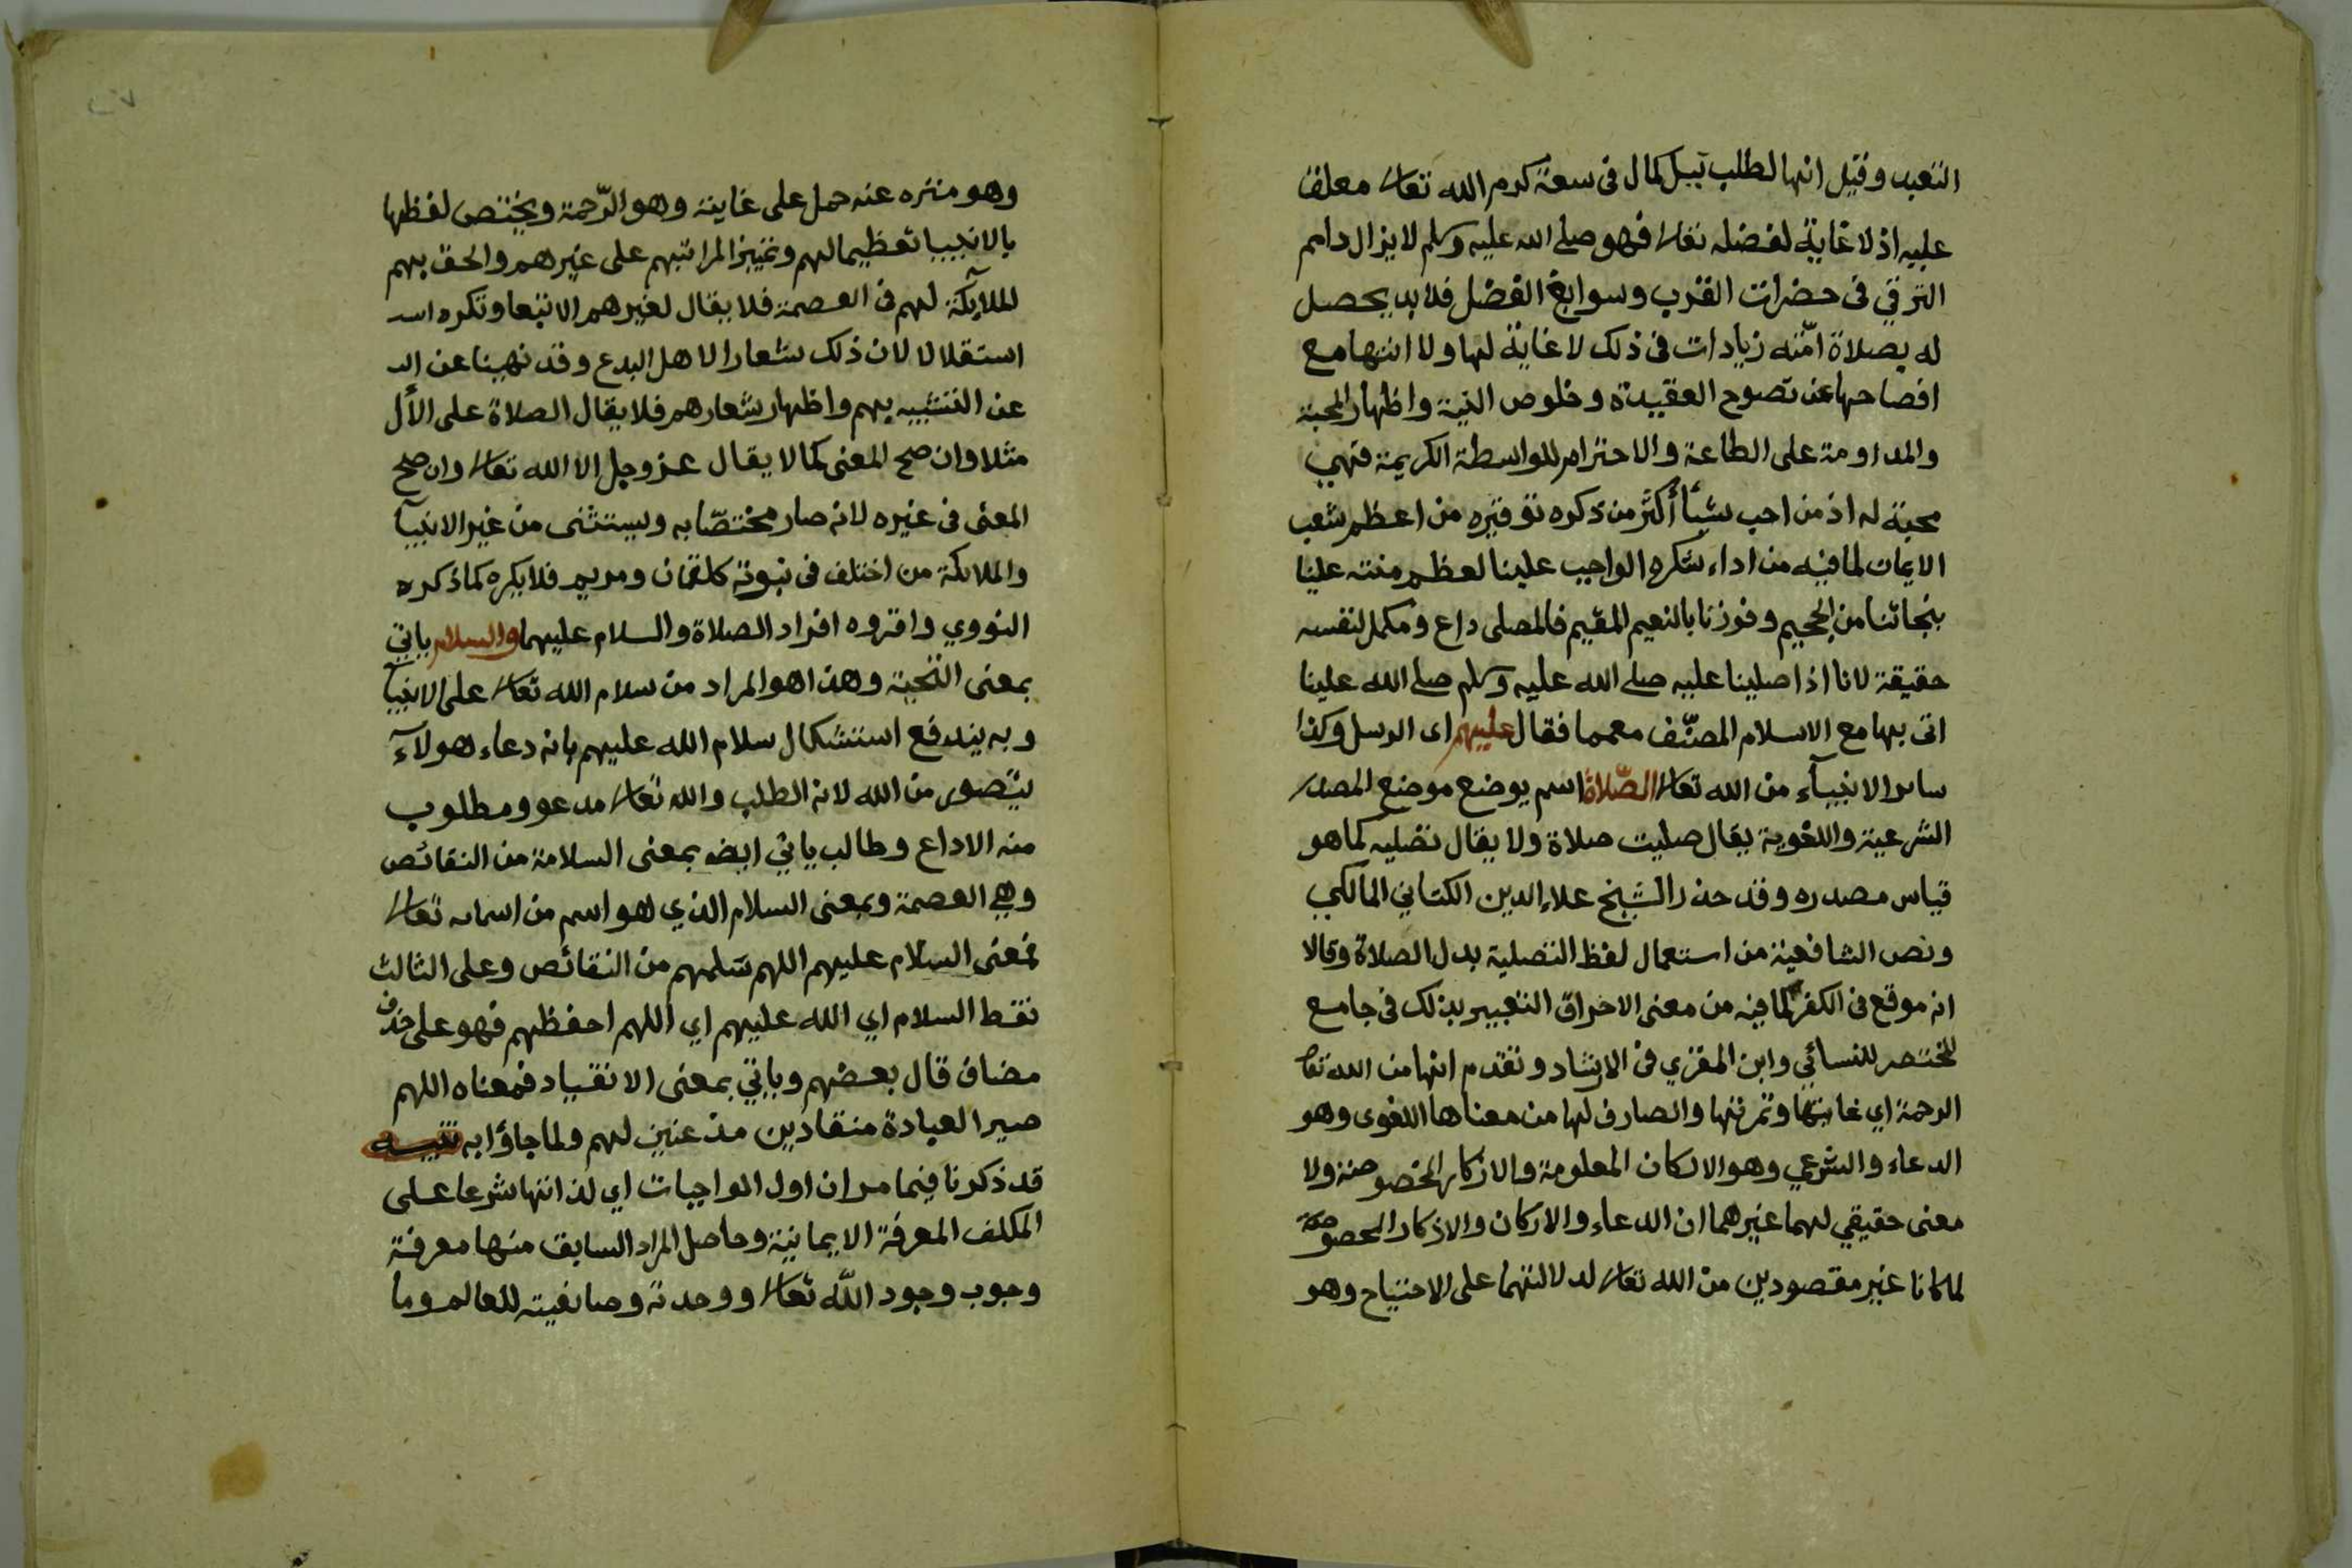 التعبد وقيل انها لطلب نيل كمال فى سعة كرم الله تعالى معلق
عليه اذ لا غاية لفضله تعالى فهو صلى الله عليه وسلم لا يزال دايم
الترقي فى حضرات القرب وسوابغ الفضل فلا بد يحصل
له بصلاة امّته زيادات فى ذلك لا غاية لها ولا انتها مع
افصاحها عن نصوح العقيدة وخلوص النية واظهار المحبة
والمداومة على الطاعة والاحترام للواسطة الكريمة فهي
محبة له اذ من احب شيأ أكثر من ذكره توقيره من اعظم شعب
الايمان لما فيه من اداء شكره الواجب علينا لعظم منته علينا
بنجاتنا من الجحيم وفوزنا بالنعيم المقيم فالمصلى داع ومكمل لنفسه
حقيقة لانا اذا صلينا عليه صلى الله عليه وسلم صلى الله علينا
اتى بها مع الاسلام المصنّف معمما فقال عليهم اى الرسل وكذا
ساير الانبيآء من الله تعالى الصّلاة اسم يوضع موضع المصدر
الشرعية واللغوية يقال صليت صلاة ولا يقال تصليه كما هو
قياس مصدره وقد حذر الشيخ علاء الدين الكناني المالكي
ونص الشافعية من استعمال لفظ التصلية بدل الصلاة وقالا
انه موقع فى الكفر لما فيه من معنى الاحراق التعبير بذلك فى جامع
المختصر للنسائي وابن المقري فى الارشاد وتقدم انها من الله تعا
الرحمة اي غايتها وثمرتها والصارف لها من معناها اللغوى وهو
الدعاء والشرعي وهو الاركان المعلومة والاذكار المخصوصة ولا
معنى حقيقي لهما غيرهما ان الدعاء والاركان والاذكار المخصوصة
لما كانا غير مقصودين من الله تعالى لدلالتهما على الاحتياج وهو
وهو منزه عنه حمل على غاينة وهو الرّحمة ويختص لفظها
بالانبيا تعظيما لهم وتمييزا لمراتبهم على غيرهم والحق بهم
الملآيكة لهم فى العصمة فلا يقال لغيرهم الا تبعا وتكره اسد
استقلالا لان ذلك شعارا لاهل البدع وقد نهينا عن الد
عن التشبيه بهم واظهار شعارهم فلا يقال الصلاة على الأل
مثلا وان صح المعنى كما لا يقال عز وجل الا الله تعالى وان صح
المعنى فى غيره لانه صار مختصّا به ويستثنى من غير الانبيآ
والملائكة من اختلف فى نبوته كلقمان ومريم فلا يكره كما ذكره
النووي واقروه افراد الصلاة والسلام عليهما والسلام ياتي
بمعنى التحية وهذا هو المراد من سلام الله تعالى على الانبيآ
وبه يندفع استشكال سلام الله عليهم بانه دعاء هولآء
يتصور من الله لانه الطلب والله تعالى مدعو ومطلوب
منه الاداع وطالب ياتي ايضه بمعنى السلامة من النقائص
وهي العصمة وبمعنى السلام الذي هو اسم من اسمائه تعالى
فمعنى السلام عليهم اللهم سَلمهم من النقائص وعلى الثالث
نقط السلام اي الله عليهم اي اللهم احفظهم فهو على حذف
مضاف قال بعضهم وياتي بمعنى الانقياد فمعناه اللهم
صير العبادة منقادين مذعنين لهم ولما جاؤا به تنبيه
قد ذكرنا فيما مر ان اول الواجبات اي لذاتها شرعا على
المكلف المعرفة الايمانية وحاصل المراد السابق منها معرفة
وجوب وجود الله تعالى ووحدته وصانعيته للعالم وما